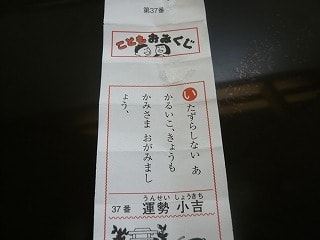 第37番
こどもおみくじ
いたずらしない あ
かるいこ、きょうも
かみさま おがみまし
ょう、
37番 運勢 小吉
うんせい しょうきち